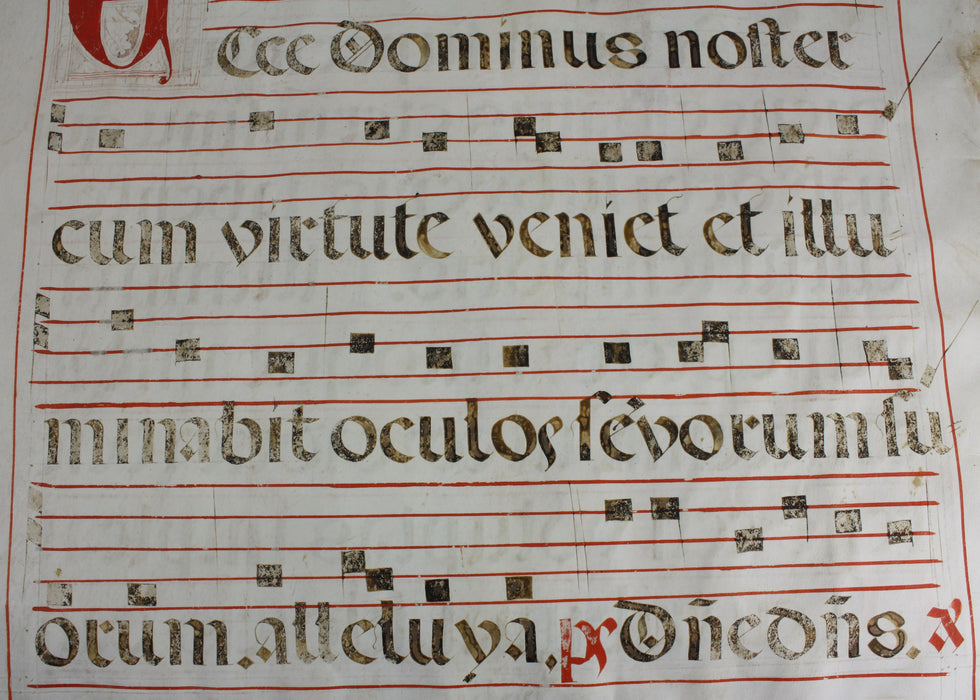 Ecce Dominus noster
cum virtute veniet et illu
minabit oculos sévorum su
orum. alleluya. ps Dñe dñs.